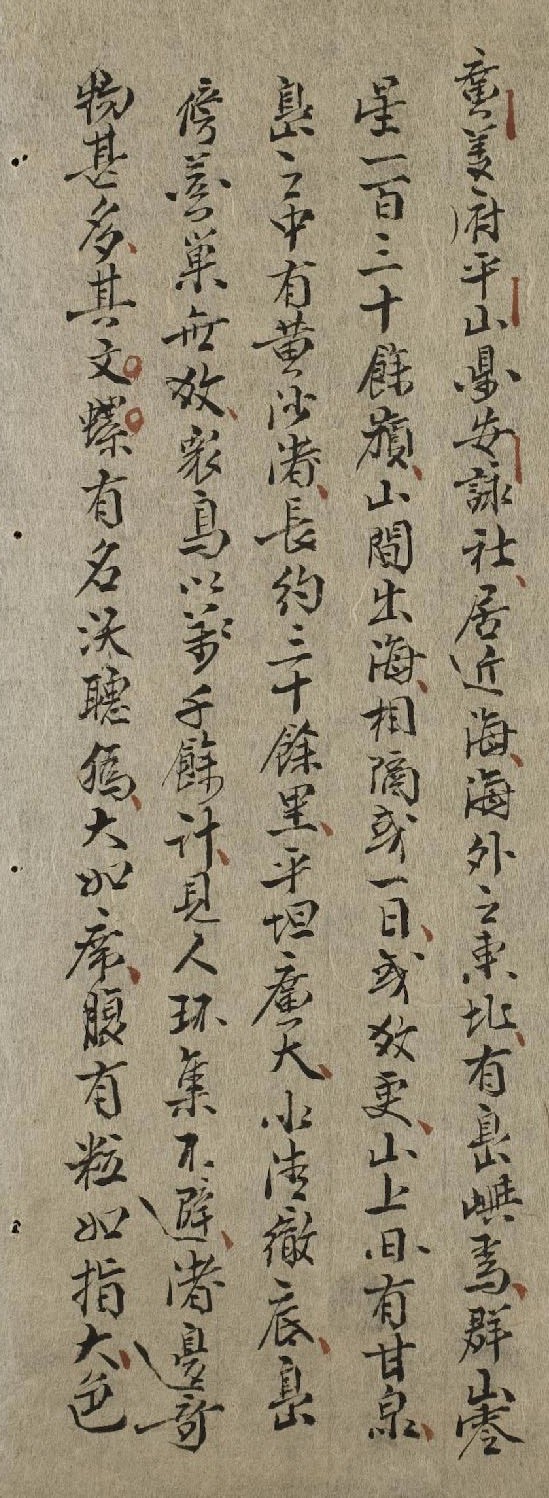 廣義府平山縣安詠社居近海海外之東北有島嶼焉群山零
星一百三十餘嶺山間出海相隔或一日或数更山上間有甘泉
島之中有黄沙渚長約三十餘里平坦廣大水清徹底島
傍燕巢無数衆鳥以萬千餘計見人环集不避渚邊竒
物甚多其文螺有名沃聴𧋍大如席腹有粒如指大色